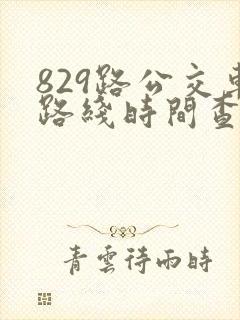 829路公交車
路綫時間查
青雲待雨時